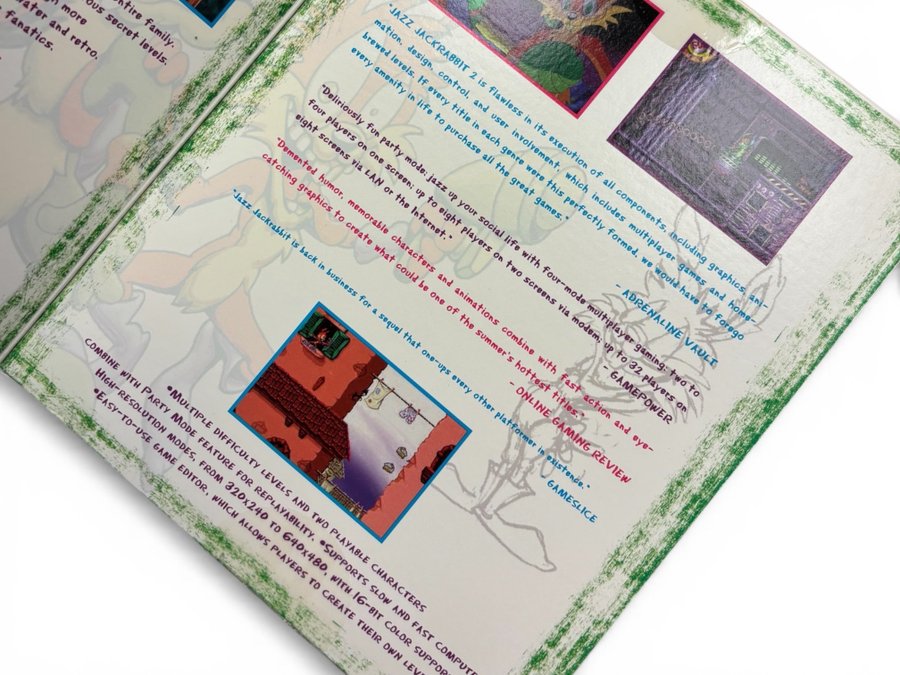 entire family.
ous secret levels.
ater and retro.
n more
fanatics.
"JAZZ JACKRABBIT 2 is flawless in its execution of all components, including graphics, ani-
mation, design, control, and user involvement, which includes multiplayer games and home-
brewed levels. If every title in each genre were this perfectly formed, we would have to forego
every amenity in life to purchase all the great games."
- ADRENALINE VAULT
"Deliriously fun party mode: jazz up your social life with four-mode multiplayer gaming: two to
four players on one screen; up to eight players on two screens via modem; up to 32 players on
eight screens via LAN or the Internet."
- GAMEPOWER
"Demented humor, memorable characters and animations combine with fast action and eye-
catching graphics to create what could be one of the summer's hottest titles."
- ONLINE GAMING REVIEW
"Jazz Jackrabbit is back in business for a sequel that one-ups every other platformer in existence."
- GAMESLICE
•MULTIPLE DIFFICULTY LEVELS AND TWO PLAYABLE CHARACTERS
COMBINE WITH PARTY MODE FEATURE FOR REPLAYABILITY. •SUPPORTS SLOW AND FAST COMPUTE
HIGH-RESOLUTION MODES, FROM 320X240 TO 640X480, WITH 16-BIT COLOR SUPPOR
•EASY-TO-USE GAME EDITOR, WHICH ALLOWS PLAYERS TO CREATE THEIR OWN LEV